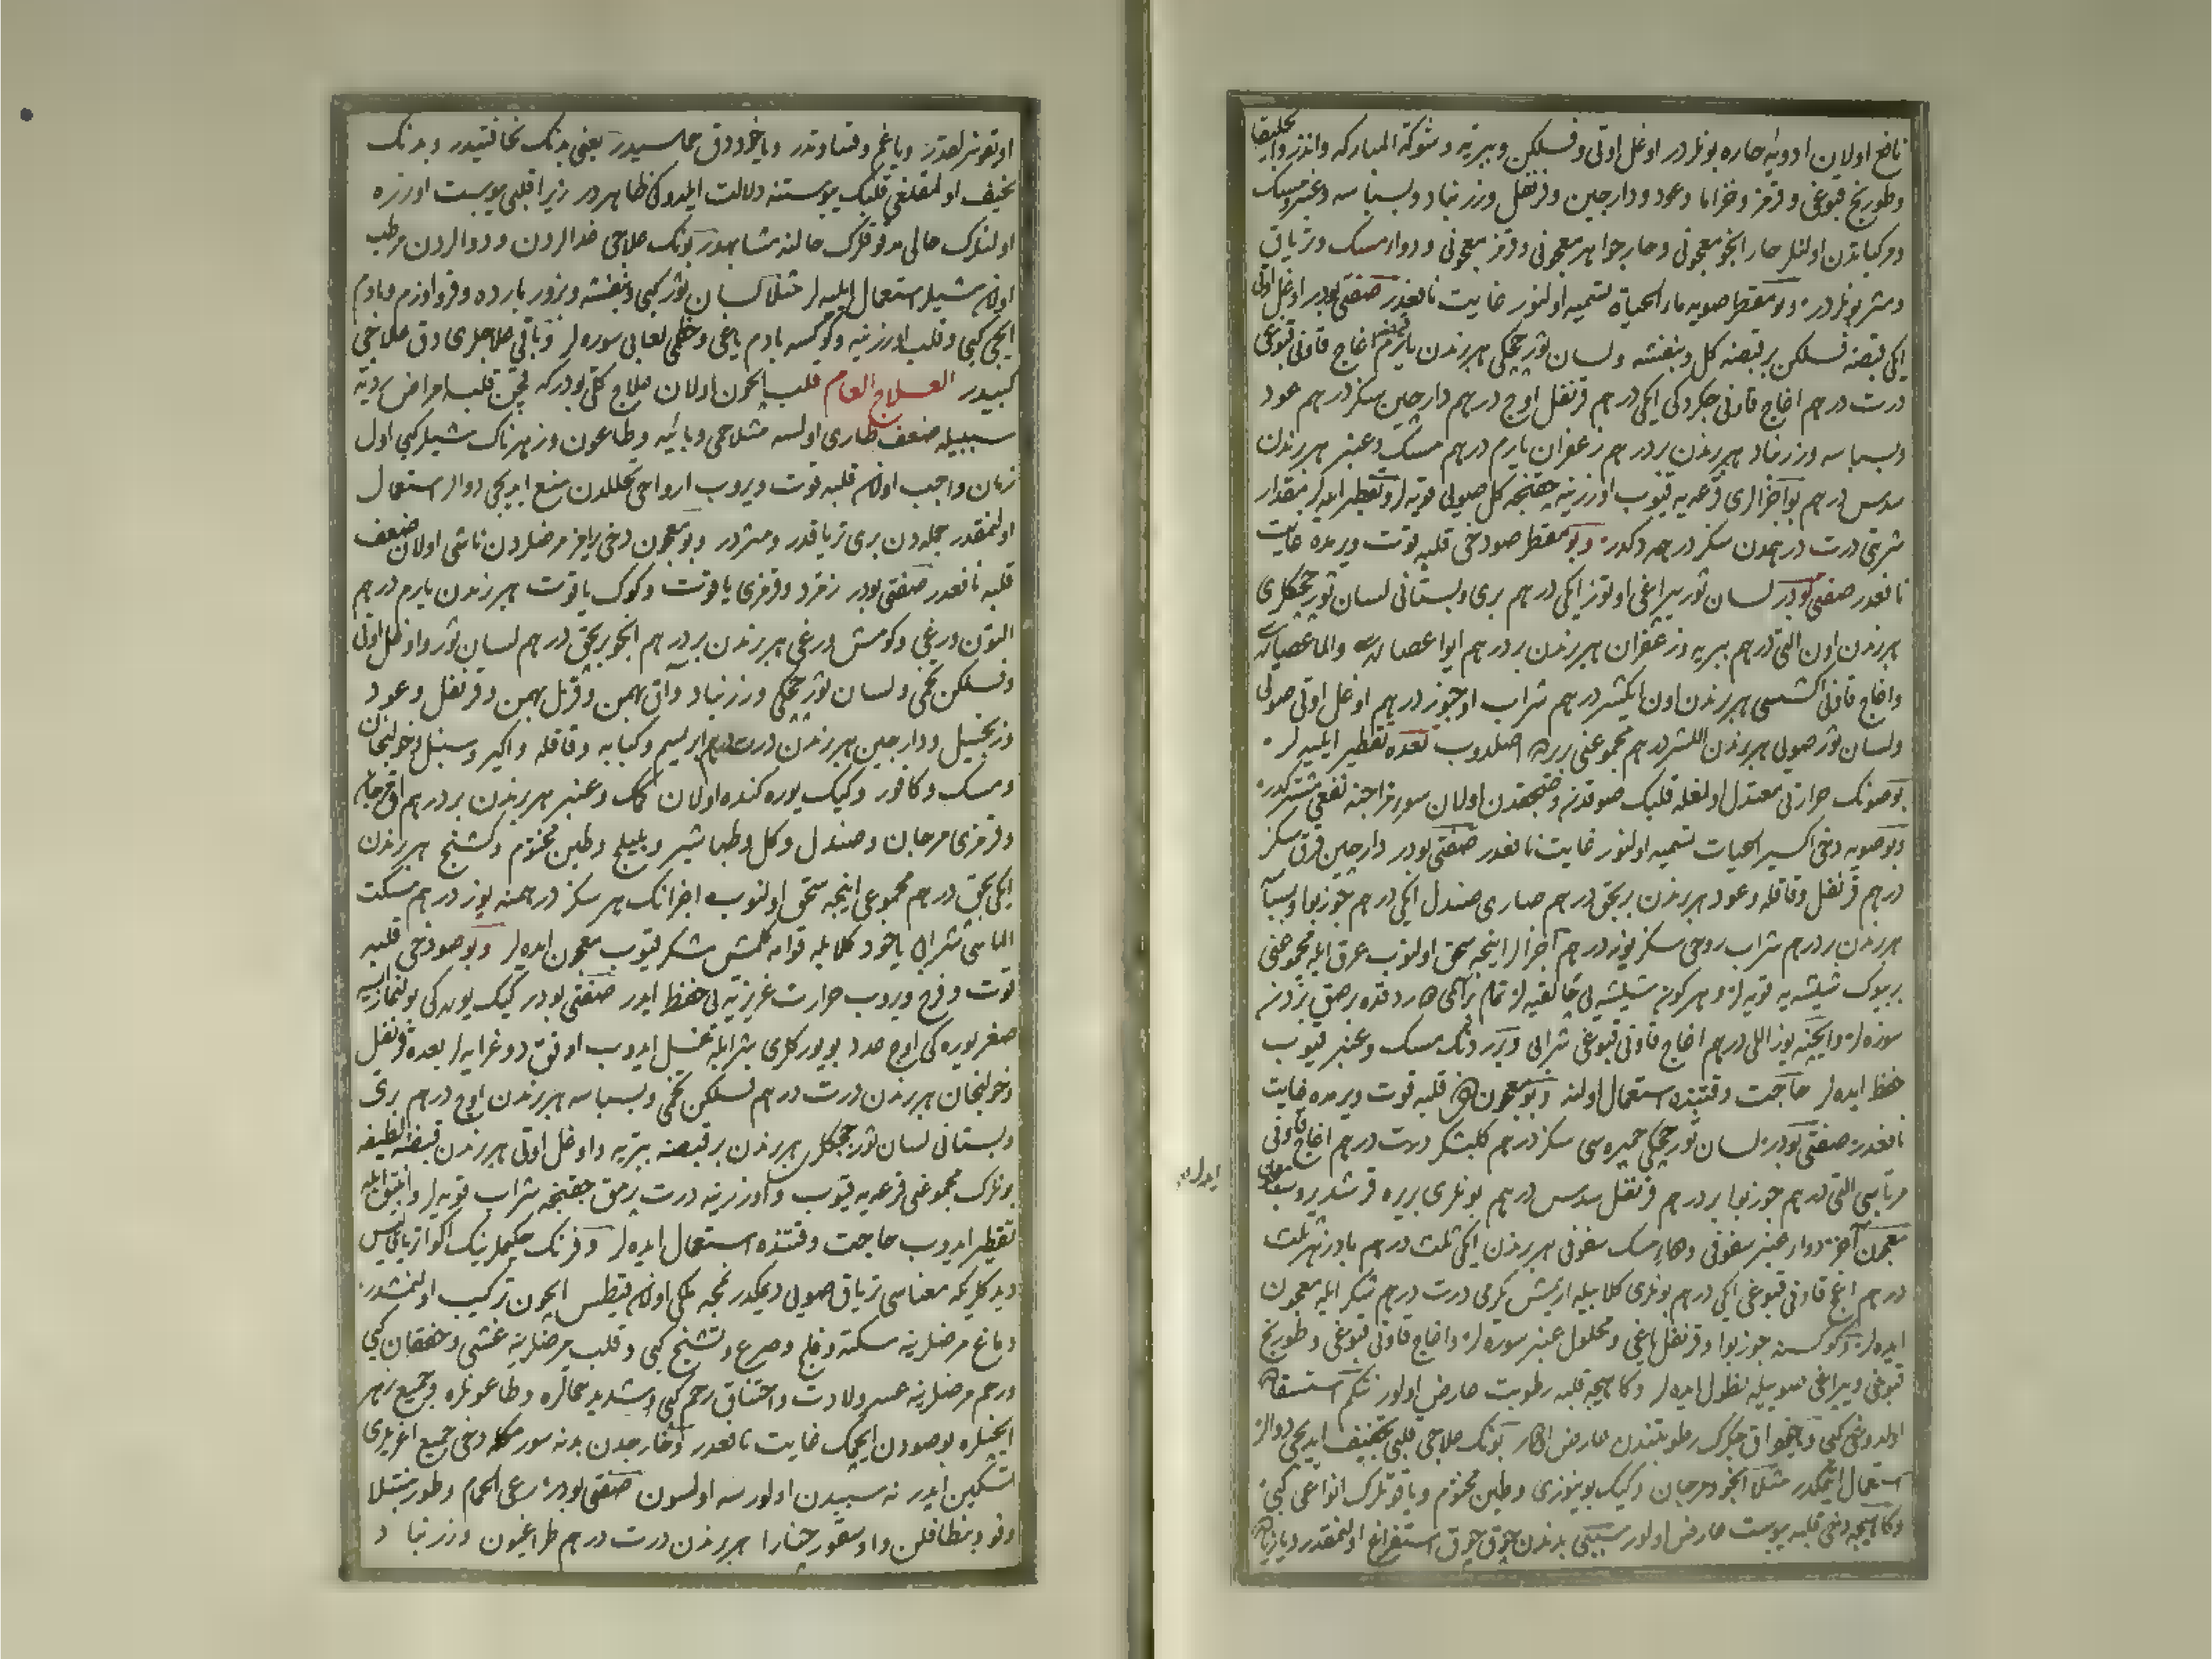 نافع اولان ادویهٔ حاره بونلردر اوغل اوتی و فسلکن و بتریه و شوکة المبارکه
و طورنج قبوغی و قرمز و خزاما و عود و دارچین و قرنفل و زرنباد و بسباسه و عنبر و مسک
و مرکباتدن اولنلر حار انجو معجونی و حار جواهر معجونی و قرمز معجونی و دوار مسک و تریاق
و مثر بونلردر و بو مقطر صویه ماء الحیاة تسمیه اولنور غایت نافعدر صفتی بودر اوغل اوتی
ایکی قبصه فسلکن بر قبصه کل و بنفشه و لسان ثور چچکی هر برندن یارم اغاج قاونی قبوغی
درت درهم اغاج قاونی چکردکی ایکی درهم قرنفل اوچ درهم دارچین سکز درهم عود
و بسباسه و زرنباد هر برندن بر درهم زعفران یارم درهم مسک و عنبر هر برندن
سدس درهم بو اجزالری قرعه یه قیوب اوزرینه چقنجه کل صویی قویه لر و تقطیر ایده لر مقدار
شربتی درت درهمدن سکز درهمه دکدر و بو مقطر صو دخی قلبه قوت ویرمده غایت
نافعدر صفتی بودر لسان ثور یپراغی اوتوز ایکی درهم بری و بستانی لسان ثور چچکلری
هر برندن اون التی درهم بتریه و زعفران هر برندن بر درهم
و اغاج قاونی اکشیسی هر برندن اون ایکیشر درهم شراب اوچیوز درهم اوغل اوتی صویی
و لسان ثور صویی هر برندن اللیشر درهم مجموعنی اصلدوب بعده تقطیر ایلیه لر
بو صونک حرارتی معتدل اولغله قلبک صوقدن و صیجقدن اولان سوء مزاجنه نفعی مشترکدر
و بو صویه دخی اکسیر الحیات تسمیه اولنور غایت نافعدر صفتی بودر دارچین قرق سکز
درهم قرنفل و قاقله و عود هر برندن بر بچق درهم صاری صندل ایکی درهم جوز بوا و بسباسه
هر برندن بر درهم شراب روحی سکز یوز درهم اجزالر اینجه سحق اولنوب عرق ایله مجموعنی
بر بیوک شیشه یه قویه لر و هر کون شیشه یی چالقیه لر تمام
سوزه لر و ایچنه یوز اللی درهم اغاج قاونی قبوغی شرابی و برر دنک مسک و عنبر قیوب
حفظ ایده لر حاجت وقتنده استعمال اولنه و بو معجون قلبه قوت ویرمده غایت
نافعدر صفتی بودر لسان ثور چچکی خمیره سی سکز درهم کلبشکر درت درهم اغاج قاونی
مرباسی التی درهم جوز بوا بر درهم قرنفل سدس درهم بونلری بریره قرشدیروب
معجون اخر دوار عنبر سفوفی و حار مسک سفوفی هر برندن ایکی ثلث درهم بادزهر ثلث
درهم اغاج قاونی قبوغی ایکی درهم بونلری کلاب ایله ازیلمش یکرمی درت درهم شکر ایله معجون
ایده لر و کوکسنه جوز بوا و قرنفل یاغی و محلول عنبر سوره لر و اغاج قاونی قبوغی و طورنج
قبوغی و یپراغی صوییله نطول ایده لر و کاهیجه قلبه رطوبت عارض اولور نتکم استسقاده
اولدوغی کبی بونک علاجی قلبی تجفیف ایدیجی دوالر
استعمال ایتمکدر مثلا انجو و مرجان و کیک بوینوزی و طین مختوم و یاقوتلرک انواعی کبی
و کاهیجه دخی قلبه یبوست عارض اولور سببی بدندن چوق چوق استفراغ اولنمقدر
اویقوسزلقدر و یا غم و قساوتدر و یاخود دق حماسیدر یعنی بدنک نحافتیدر و بدنک
نحیف اولمقلغی قلبک یبوستنه دلالت ایلدوکی ظاهردر زیرا قلبی یبوست اوزره
اولنلرک حالی مدقوقلرک حالنه مشابهدر بونک علاجی غدالردن و دوالردن مرطب
اولان شیلر استعمال ایلیه لر مثلا لسان ثور کبی و بنفشه و بزور بارده و قرو اوزم و بادم
ایچی کبی و قلب اوزرینه و کوکسه بادم یاغی و خطمی لعابی سوره لر و باقی علاجلری دق علاجی
کبیدر العلاج العام قلب ایچون اولان علاج کلی بودرکه قچن قلبه امراض ردیه
سببیله ضعف طاری اولسه مثلا حمی وبائیه و طاعون و زهرناک شیلر کبی اول
زمان واجب اولان قلبه قوت ویروب ارواحی تحللدن منع ایدیجی دوالر استعمال
اولنمقدر جمله دن بری تریاقدر و مثردر و بو معجون دخی یرامز مرضلردن ناشی اولان ضعف
قلبه نافعدر صفتی بودر زمرد و قرمزی یاقوت و کوک یاقوت هر برندن یارم درهم
التون ورغی و کومش ورغی هر برندن بر درهم انجو بر بچق درهم لسان ثور و اوغل اوتی
و فسلکن تخمی و لسان ثور چچکی و زرنباد و اق بهمن و قزل بهمن و قرنفل و عود
و زنجبیل و دارچین هر برندن درت درهم ابریشم و کبابه و قاقله و اکیر و سنبل و خولنجان
و مسک و کافور و کیک یوره کنده اولان کمک و عنبر هر برندن بر درهم اق مرجان
و قرمزی مرجان و صندل و کل و طباشیر و بلیلج و طین مختوم و کشنج هر برندن
ایکی بچق درهم مجموعی اینجه سحق اولنوب اجزانک هر سکز درهمنه یوز درهم مسکت
الماسی شرابی یاخود کلابله قوامه کلمش شکر قیوب معجون ایده لر و بو صو دخی قلبه
قوت و فرح ویروب حرارت غریزیه یی حفظ ایدر صفتی بودر کیک یوره کی بولنمازسه
صغر یوره کی اوچ عدد بو یورکلری شرابله غسل ایدوب اوفق دوغرایه لر بعده قرنفل
و خولنجان هر برندن درت درهم فسلکن تخمی و بسباسه هر برندن اوچ درهم بری
و بستانی لسان ثور چچکلری هر برندن بر قبصه بتریه و اوغل اوتی هر برندن قبضة لطیفه
بونلرک مجموعنی قرعه یه قیوب و اوزرینه درت پرمق چقنجه شراب قویه لر و انبیق ایله
تقطیر ایدوب حاجت وقتنده استعمال ایده لر و فرنک حکیملرینک اکوا تریاقالیس
دیدکلریکه معناسی تریاق صویی دیمکدر نمچه ملکی اولان ایچون ترکیب اولنمشدر
دماغ مرضلرینه سکته و فلج و صرع و تشنج کبی و قلب مرضلرینه غشی و خفقان کبی
و رحم مرضلرینه عسر ولادت و اختناق رحم کبی و شدید حمالره و طاعونلره و جمیع زهر
ایچنلره بو صودن ایچمک غایت نافعدر و خارجدن بدنه سورمکله دخی جمیع اغریلری
تسکین ایدر نه سببدن اولورسه اولسون صفتی بودر رعی الحمام و طورمنتلا
و اوسقورجنارا هر برندن درت درهم طراغیون و زرنباد